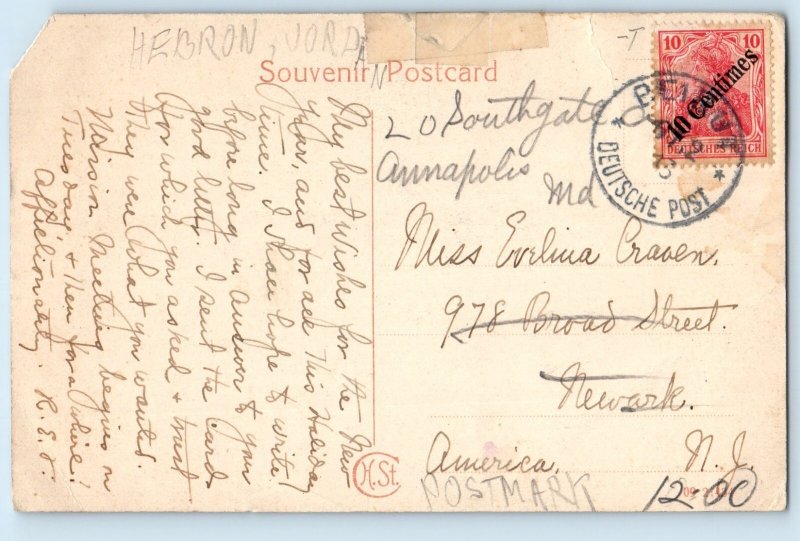 HEBRON, JORDAN
-T
Souvenir Postcard
My best wishes for the New
Year, and for all this Holiday
time. I shall hope to write
before long in answer to your
good letter. I sent the cards
for which you asked & trust
they were what you wanted.
Mission Meeting begins on
Tuesday, & then for a while!
Affectionately. R.E.J.
20 Southgate
Annapolis
Md
Miss Evelina Craven.
978 Broad Street.
Newark.
America. N. J.
H.St.
POSTMARK
12-00
10 10
10 Centimes
DEUTSCHES REICH
DEUTSCHE POST